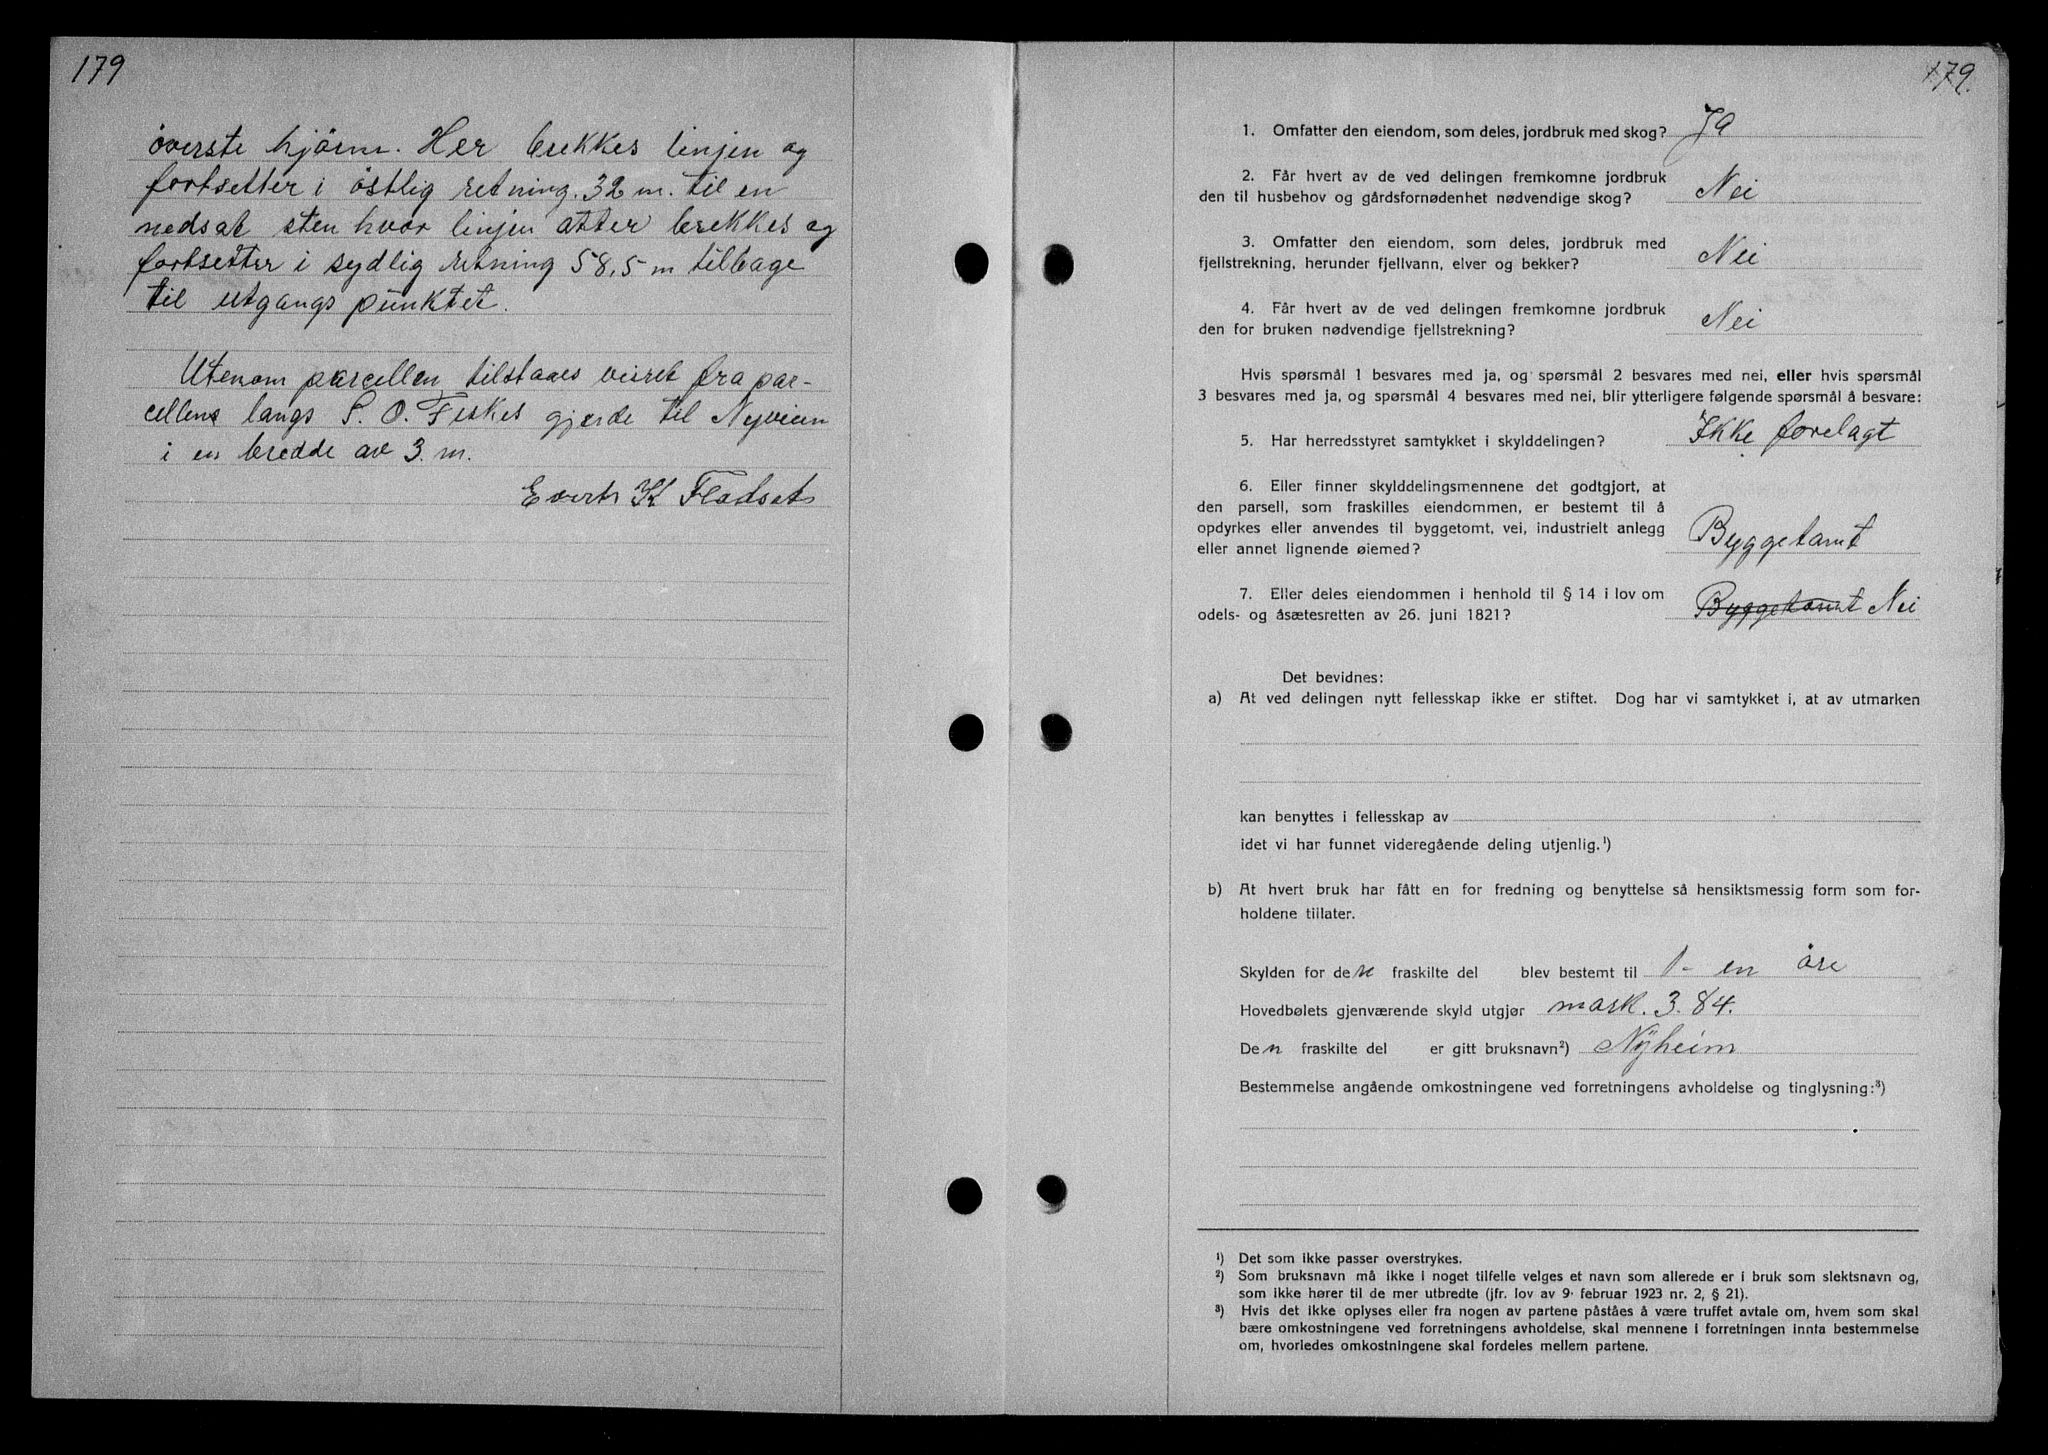 179
överste hjörne. Her brekkes linjen og
fortsetter i östlig retning. 32 m. til en
nedsat sten hvor linjen atter brekkes og
fortsetter i sydlig retning 58,5 m tilbage
til utgangs punktet.
Utenom parcellen tilstaaes veiret fra par-
cellens langs S. O. Fiskes gjerde til Nyveien
i en bredde av 3. m.
Everts K Fladset
179.
1. Omfatter den eiendom, som deles, jordbruk med skog? Ja
2. Får hvert av de ved delingen fremkomne jordbruk
den til husbehov og gårdsfornødenhet nødvendige skog? Nei
3. Omfatter den eiendom, som deles, jordbruk med
fjellstrekning, herunder fjellvann, elver og bekker? Nei
4. Får hvert av de ved delingen fremkomne jordbruk
den for bruken nødvendige fjellstrekning? Nei
Hvis spørsmål 1 besvares med ja, og spørsmål 2 besvares med nei, eller hvis spørsmål
3 besvares med ja, og spørsmål 4 besvares med nei, blir ytterligere følgende spørsmål å besvare:
5. Har herredsstyret samtykket i skylddelingen? Ikke forelagt
6. Eller finner skylddelingsmennene det godtgjort, at
den parsell, som fraskilles eiendommen, er bestemt til å
opdyrkes eller anvendes til byggetomt, vei, industrielt anlegg
eller annet lignende øiemed? Byggetomt
7. Eller deles eiendommen i henhold til § 14 i lov om
odels- og åsætesretten av 26. juni 1821? Byggetomt Nei
Det bevidnes:
a) At ved delingen nytt fellesskap ikke er stiftet. Dog har vi samtykket i, at av utmarken
kan benyttes i fellesskap av
idet vi har funnet videregående deling utjenlig.¹)
b) At hvert bruk har fått en for fredning og benyttelse så hensiktsmessig form som for-
holdene tillater.
Skylden for den fraskilte del blev bestemt til 1- en öre
Hovedbølets gjenværende skyld utgjør mark. 3. 84.
Den fraskilte del er gitt bruksnavn²) Nyheim
Bestemmelse angående omkostningene ved forretningens avholdelse og tinglysning:³)
¹) Det som ikke passer overstrykes.
²) Som bruksnavn må ikke i noget tilfelle velges et navn som allerede er i bruk som slektsnavn og,
som ikke hører til de mer utbredte (jfr. lov av 9. februar 1923 nr. 2, § 21).
³) Hvis det ikke oplyses eller fra nogen av partene påståes å være truffet avtale om, hvem som skal
bære omkostningene ved forretningens avholdelse, skal mennene i forretningen innta bestemmelse
om, hvorledes omkostningene skal fordeles mellem partene.